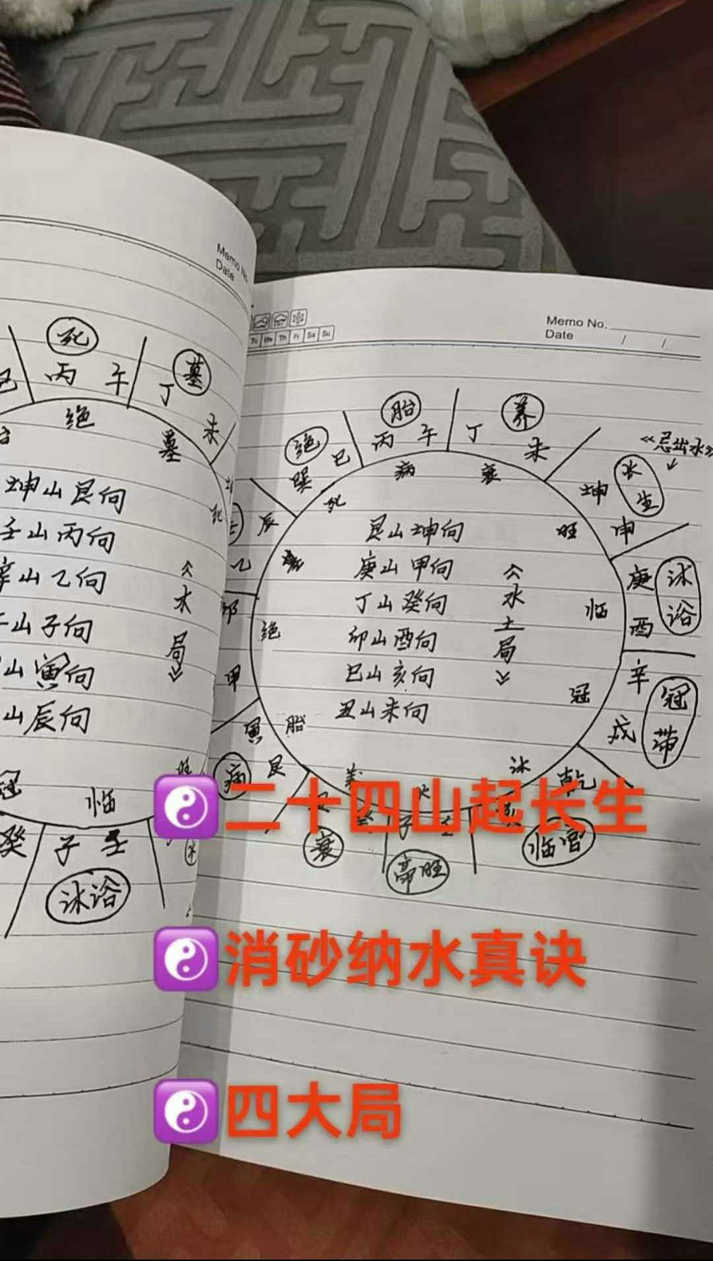 Memo No.
Date
死
墓
巳
丙
午
丁
未
绝
墓
坤山艮向
壬山丙向
辛山乙向
山子向
山寅向
山辰向
《水局》
冠
临
癸
子
壬
沐浴
Memo No.
Date / /
Tu We Th Fr Sa Su
绝
巽
巳
胎
丙
午
丁
养
未
《忌出水》
坤
水生
申
庚
沐浴
酉
辛
冠带
戌
辰
乙
卯
甲
寅
艮
病
死
病
衰
旺
临
冠
沐
养
胎
绝
墓
艮山坤向
庚山甲向
丁山癸向
卯山酉向
巳山亥向
丑山未向
《水土局》
乾
临官
帝旺
衰
☯二十四山起长生
☯消砂纳水真诀
☯四大局